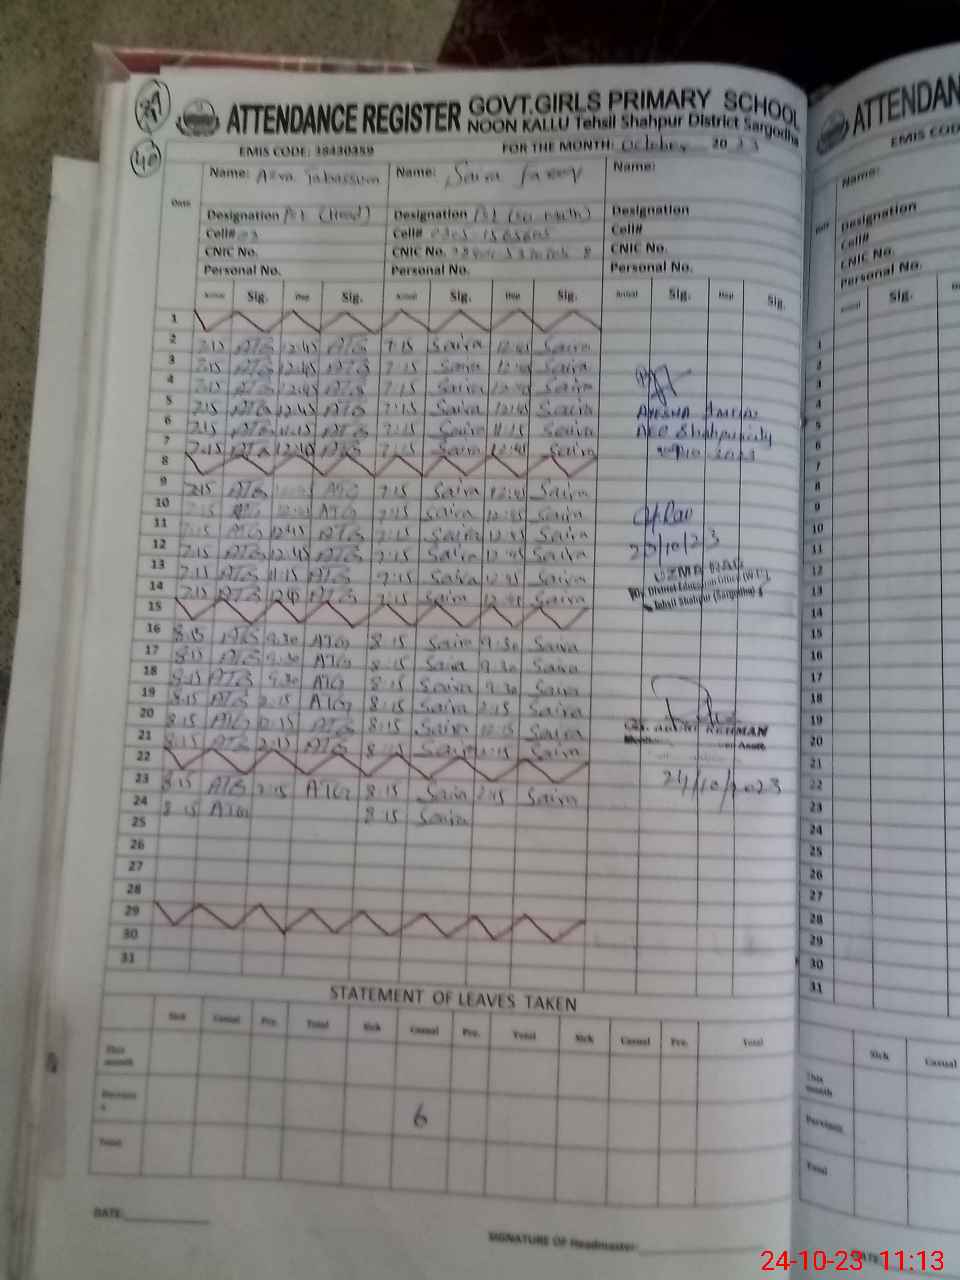 39
40
ATTENDANCE REGISTER GOVT.GIRLS PRIMARY SCHOOL
NOON KALLU Tehsil Shahpur District Sargodha
EMIS CODE: 38430359 FOR THE MONTH: October 2023
Date Name: Name: Saira Name:
Designation PST (Head) Designation PST Designation
Cell# 03 Cell# Cell#
CNIC No. CNIC No. CNIC No.
Personal No. Personal No. Personal No.
Arrival Sig. Dep Sig. Arrival Sig. Dep Sig. Arrival Sig. Dep Sig.
1
2 7:15 ATG 12:45 ATG 7:15 Saira 12:45 Saira
3 7:15 ATG 12:45 ATG 7:15 Saira 12:45 Saira
4 7:15 ATG 12:45 ATG 7:15 Saira 12:45 Saira
5 7:15 ATG 12:45 ATG 7:15 Saira 12:45 Saira
6 7:15 ATG 11:15 ATG 7:15 Saira 11:15 Saira
7 7:15 ATG 12:45 ATG 7:15 Saira 12:45 Saira
8
9 7:15 ATG ATG 7:15 Saira 12:45 Saira
10 7:15 ATG 7:15 Saira 12:45 Saira
11 ATG 12:45 ATG 7:15 Saira 12:45 Saira
12 7:15 ATG 12:45 ATG 7:15 Saira 12:45 Saira
13 7:15 ATG 11:15 ATG 7:15 Saira Saira
14 7:15 ATG 12:45 ATG 7:15 Saira 12:45 Saira
15
16 8:15 ATG 9:30 ATG 8:15 Saira 9:30 Saira
17 8:15 ATG 9:30 ATG 8:15 Saira 9:30 Saira
18 8:15 ATG 9:30 ATG 8:15 Saira 9:30 Saira
19 8:15 ATG 2:15 ATG 8:15 Saira 2:15 Saira
20 8:15 ATG 12:15 ATG 8:15 Saira 12:15 Saira
21 8:15 ATG 2:15 ATG 8:15 Saira 2:15 Saira
22
23 8:15 ATG 2:15 ATG 8:15 Saira 2:15 Saira
24 8:15 ATG 8:15 Saira
25
26
27
28
29
30
31
AYESHA
AEO Shahpur
2023
Rao
UZMA RAO
Dy. District Education Officer (W-EE)
Tehsil Shahpur (Sargodha)
REHMAN
24/10/2023
STATEMENT OF LEAVES TAKEN
Sick Casual Pre. Total Sick Casual Pre. Total Sick Casual Pre. Total
This month
Previous 6
Total
DATE:
SIGNATURE OF Headmaster:
ATTENDAN
EMIS COD
Name:
Designation
Cell#
CNIC No.
Personal No.
Sig.
1
2
3
4
5
6
7
8
9
10
11
12
13
14
15
16
17
18
19
20
21
22
23
24
25
26
27
28
29
30
31
Sick Casual
This month
Previous
Total
DATE:
24-10-23 11:13